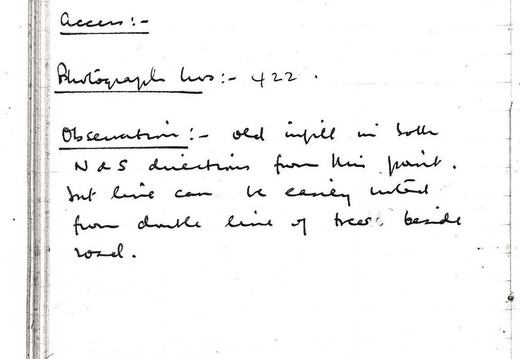 Access:-
Photograph Nos:- 422.
Observation:- old infill in both
N & S directions from this point.
but line can be easily noted
from double line of trees beside
road.